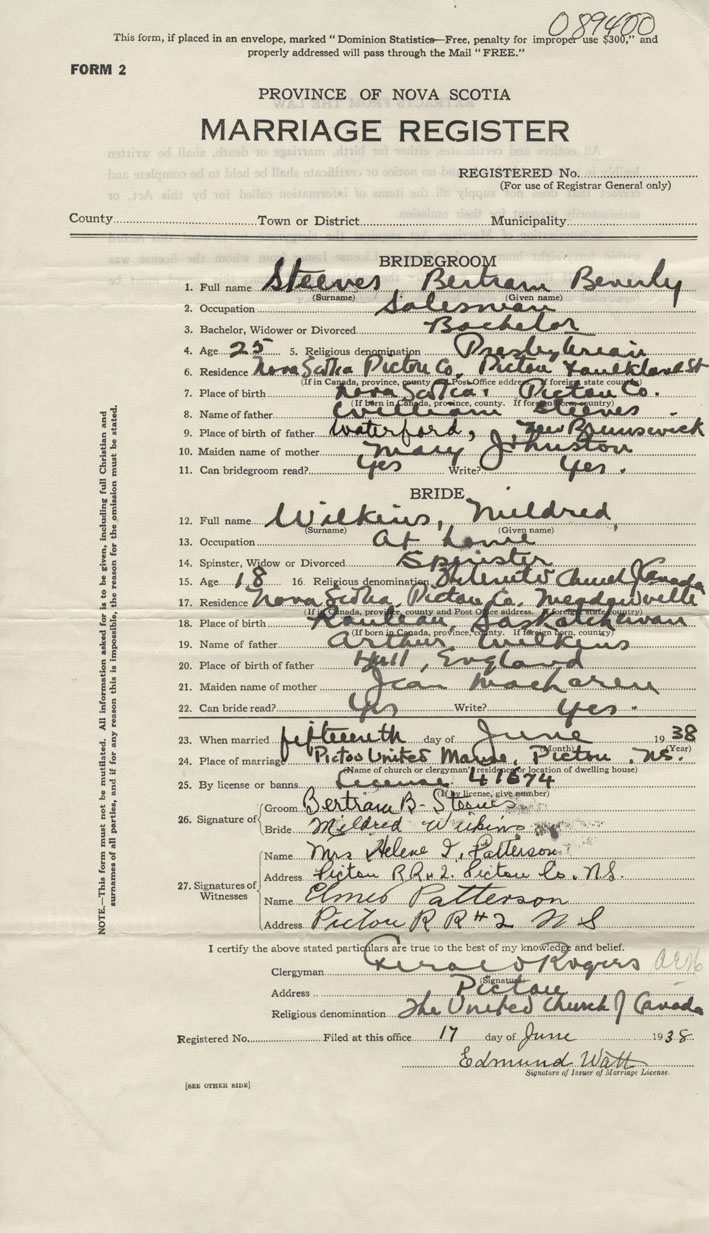 089400
This form, if placed in an envelope, marked "Dominion Statistics—Free, penalty for improper use $300," and
properly addressed will pass through the Mail "FREE."
FORM 2
PROVINCE OF NOVA SCOTIA
MARRIAGE REGISTER
REGISTERED No.
(For use of Registrar General only)
County Town or District Municipality
BRIDEGROOM
1. Full name Steeves Bertram Beverly
(Surname) (Given name)
2. Occupation Salesman
3. Bachelor, Widower or Divorced Bachelor
4. Age 25 5. Religious denomination Presbyterian
6. Residence Nova Scotia Pictou Co. Pictou Faulkland St
(If in Canada, province, county and Post Office address. If foreign state country)
7. Place of birth Nova Scotia. Pictou Co.
(If born in Canada, province, county. If foreign born, country)
8. Name of father William Steeves
9. Place of birth of father Waterford, New Brunswick
10. Maiden name of mother Mary Johnston
11. Can bridegroom read? Yes Write? Yes.
BRIDE
12. Full name Wilkins, Mildred,
(Surname) (Given name)
13. Occupation At home
14. Spinster, Widow or Divorced Spinster
15. Age 18 16. Religious denomination United Church of Canada
17. Residence Nova Scotia, Pictou Co. Meadowville
(If in Canada, province, county and Post Office address. If foreign state country)
18. Place of birth Rouleau, Saskatchewan
(If born in Canada, province, county. If foreign born, country)
19. Name of father Arthur Wilkins
20. Place of birth of father Hull, England
21. Maiden name of mother Jean MacLaren
22. Can bride read? Yes Write? Yes.
23. When married fifteenth day of June 1938
(Month) (Year)
24. Place of marriage Pictou United Manse, Pictou, N.S.
(Name of church or clergyman's residence or location of dwelling house)
25. By license or banns License 41674
(If by license, give number)
26. Signature of Groom Bertram B. Steeves
Bride Mildred Wilkins
27. Signatures of Witnesses
Name Mrs Helene I. Patterson
Address Pictou R.R#2. Pictou Co. N.S.
Name Elmer Patterson
Address Pictou R R #2 N S
I certify the above stated particulars are true to the best of my knowledge and belief.
Clergyman Gerald Rogers
(Signature)
Address Pictou
Religious denomination The United Church of Canada
Registered No. Filed at this office 17 day of June 1938
Edmund Watt
Signature of Issuer of Marriage License.
[SEE OTHER SIDE]
NOTE.—This form must not be mutilated. All information asked for is to be given, including full Christian and
surnames of all parties, and if for any reason this is impossible, the reason for the omission must be stated.